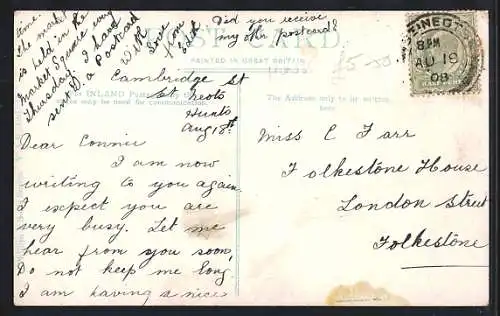 time. The market
is held in the
Market Square every
Thursday. I have
sent D. a postcard
With
Love
from
Edit
Did you receive
my other postcard?
POST CARD
PRINTED IN GREAT BRITAIN
£5-50
INLAND
only be used for communication.
The Address only to be written
here
Cambridge St
St Neots
Hunts
Aug 18th
Dear Connie
I am now
writing to you again.
I expect you are
very busy. Let me
hear from you soon,
Do not keep me long.
I am having a nice
8 PM
AU 18
08
Miss C Farr
Folkestone House
London Street
Folkestone